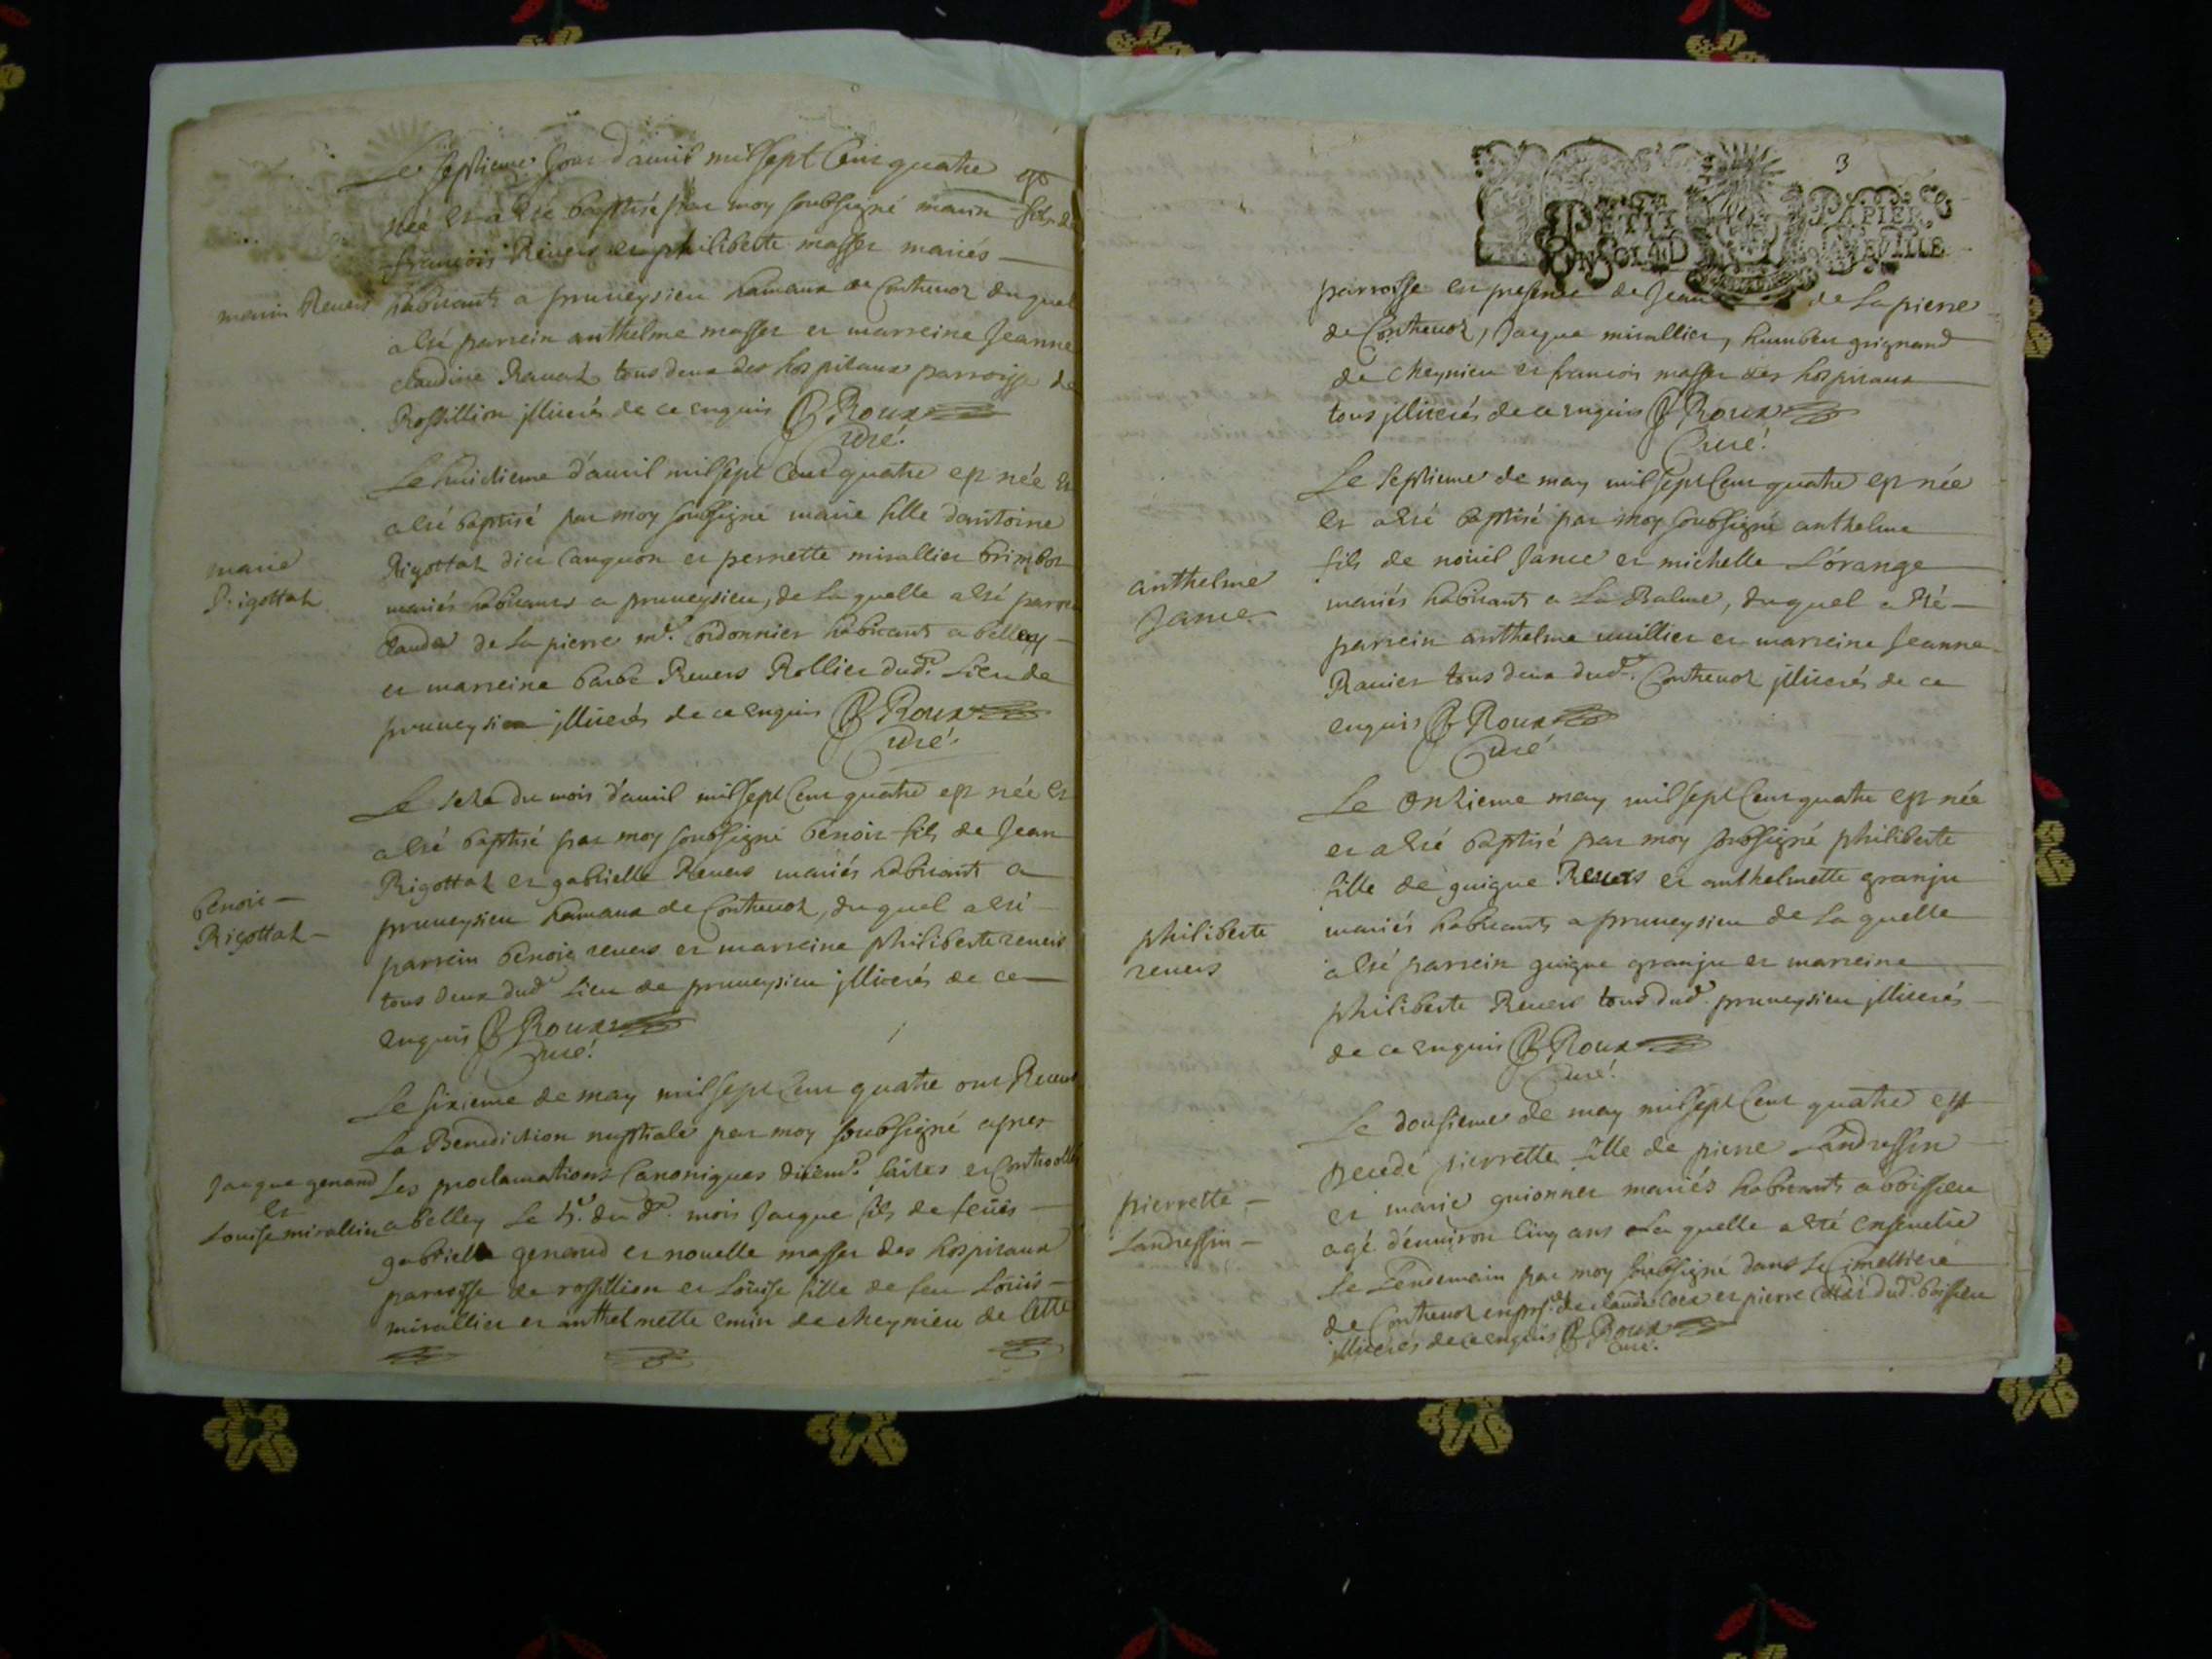 Le septieme Jour d'auril mil sept Cent quatre est
née et a lté baptisé par moy soubsigné marin fils de
francois Reuers et philiberte masser mariés
marin Reuers
habitants a pruneysieu hamaux de Contreuoz duquel
a lté parrein anthelme masser et marreine Jeanne
claudine Rauat tous deux des hospitaux parroisse de
Rossillion illiterés de ce enquis B Roux
Curé.
Le huictieme d'auril mil sept Cent quatre est née et
a lté baptisé par moy soubsigné marie fille d'antoine
marie
Rigottat
Rigottat dict Canquon et pernette mirallier
mariés habitants a pruneysieu, de la quelle a lté parrein
Claude de la pierre me. Cordonnier habitant a belley
et marreine barbe Reuers Rollier dud. Lieu de
pruneysieu illiterés de ce enquis B Roux
Curé.
Le seze du mois d'auril mil sept Cent quatre est née et
a lté baptisé par moy soubsigné benoit fils de Jean
benoit
Rigottat
Rigottat et gabrielle Reuers mariés habitants a
pruneysieu hamaux de Contreuoz, duquel a lté
parrein benoit reuers et marreine philiberte reuers
tous deux dud. Lieu de pruneysieu illiterés de ce
enquis B Roux
Curé.
Le sixieme de may mil sept Cent quatre ont Receut
La Benediction nuptiale par moy soubsigné apres
Jaque genand
et
Louise mirallier
Les proclamations Canoniques faites et Controollé
a belley le 5e. du d. mois Jaque fils de feûs
gabriel genand et nouelle masser des hospitaux
parroisse de rossillion et Loüise fille de feu Loüis
mirallier et anthelmette emin de cheynieu de Cette
3
PETIT PAPIER
UN SOL LA FEUILLE
parroisse en presence de Jean de la pierre
de Contreuoz, Jaque mirallier, humbert grignand
de cheynieu et francois masser des hospitaux
tous illiterés de ce enquis B Roux
Curé.
Le septieme de may mil sept Cent quatre est née
et a lté baptisé par moy soubsigné anthelme
anthelme
Jance
fils de nouël Jance et michelle Lórange
mariés habitants a La Balme, duquel a lté
parrein anthelme mullier et marreine Jeanne
Rauier tous deux dud. Contreuoz illiterés de ce
enquis B Roux
Curé
Le Onzieme may mil sept Cent quatre est née
et a lté baptisé par moy soubsigné philiberte
fille de guigue Reuers et anthelmette granju
philiberte
reuers
mariés habitants a pruneysieu de la quelle
a lté parrein guigue granju et marreine
philiberte Reuers tous dud. pruneysieu illiterés
de ce enquis B Roux
Curé.
Le dousieme de may mil sept Cent quatre est
Decedé pierrette fille de pierre Landressin
pierrette
Landressin
et marie guionnet mariés habitants a boissieu
agé d'enuiron Cinq ans La quelle a lté enseuelie
Le Lendemain par moy soubsigné dans le Cimettiere
de Contreuoz en prsce. de claude et pierre dud. boissieu
illiterés de ce enquis B Roux
Curé.